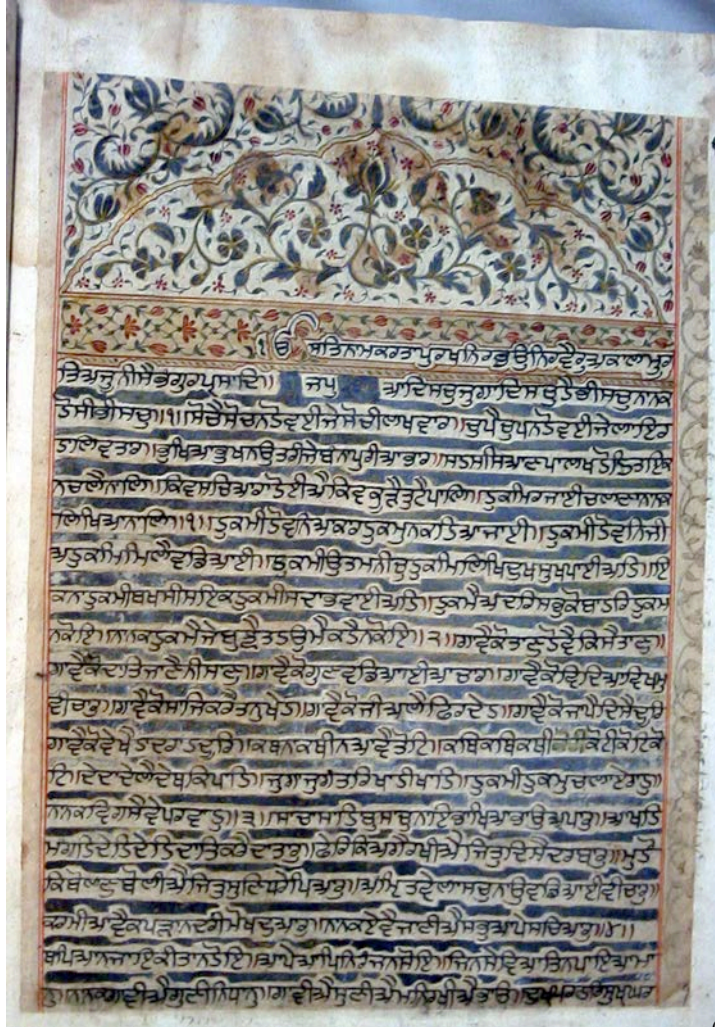 ੴ ਸਤਿਨਾਮੁਕਰਤਾਪੁਰਖੁਨਿਰਭਉਨਿਰਵੈਰੁਅਕਾਲਮੂਰ
ਤਿਅਜੂਨੀਸੈਭੰਗੁਰਪ੍ਰਸਾਦਿ॥ ਜਪੁ ਆਦਿਸਚੁਜੁਗਾਦਿਸਚੁਹੈਭੀਸਚੁਨਾਨਕ
ਹੋਸੀਭੀਸਚੁ॥੧॥ਸੋਚੈਸੋਚਨਹੋਵਈਜੇਸੋਚੀਲਖਵਾਰ॥ਚੁਪੈਚੁਪਨਹੋਵਈਜੇਲਾਇਰ
ਹਾਲਿਵਤਾਰ॥ਭੁਖਿਆਭੁਖਨਉਤਰੀਜੇਬੰਨਾਪੁਰੀਆਭਾਰ॥ਸਹਸਸਿਆਣਪਾਲਖਹੋਹਿਤਇਕ
ਨਚਲੈਨਾਲਿ॥ਕਿਵਸਚਿਆਰਾਹੋਈਐਕਿਵਕੂੜੈਤੁਟੈਪਾਲਿ॥ਹੁਕਮਿਰਜਾਈਚਲਣਾਨਾਨਕ
ਲਿਖਿਆਨਾਲਿ॥੧॥ਹੁਕਮੀਹੋਵਨਿਆਕਾਰਹੁਕਮੁਨਕਹਿਆਜਾਈ॥ਹੁਕਮੀਹੋਵਨਿਜੀ
ਅਹੁਕਮਿਮਿਲੈਵਡਿਆਈ॥ਹੁਕਮੀਉਤਮਨੀਚੁਹੁਕਮਿਲਿਖਿਦੁਖਸੁਖਪਾਈਅਹਿ॥ਇ
ਕਨਾਹੁਕਮੀਬਖਸੀਸਇਕਹੁਕਮੀਸਦਾਭਵਾਈਅਹਿ॥ਹੁਕਮੈਅੰਦਰਿਸਭੁਕੋਬਾਹਰਿਹੁਕਮ
ਨਕੋਇ॥ਨਾਨਕਹੁਕਮੈਜੇਬੁਝੈਤਹਉਮੈਕਹੈਨਕੋਇ॥੨॥ਗਾਵੈਕੋਤਾਣੁਹੋਵੈਕਿਸੈਤਾਣੁ॥
ਗਾਵੈਕੋਦਾਤਿਜਾਣੈਨੀਸਾਣੁ॥ਗਾਵੈਕੋਗੁਣਵਡਿਆਈਆਚਾਰ॥ਗਾਵੈਕੋਵਿਦਿਆਵਿਖਮੁ
ਵੀਚਾਰੁ॥ਗਾਵੈਕੋਸਾਜਿਕਰੇਤਨੁਖੇਹ॥ਗਾਵੈਕੋਜੀਅਲੈਫਿਰਿਦੇਹ॥ਗਾਵੈਕੋਜਾਪੈਦਿਸੈਦੂਰਿ
ਗਾਵੈਕੋਵੇਖੈਹਾਦਰਾਹਦੂਰਿ॥ਕਥਨਾਕਥੀਨਆਵੈਤੋਟਿ॥ਕਥਿਕਥਿਕਥੀ ਕੋਟੀਕੋਟਿਕੋ
ਟਿ॥ਦੇਦਾਦੇਲੈਦੇਥਕਿਪਾਹਿ॥ਜੁਗਾਜੁਗੰਤਰਿਖਾਹੀਖਾਹਿ॥ਹੁਕਮੀਹੁਕਮੁਚਲਾਏਰਾਹੁ॥
ਨਾਨਕਵਿਗਸੈਵੇਪਰਵਾਹੁ॥੩॥ਸਾਚਾਸਾਹਿਬੁਸਾਚੁਨਾਇਭਾਖਿਆਭਾਉਅਪਾਰੁ॥ਆਖਹਿ
ਮੰਗਹਿਦੇਹਿਦੇਹਿਦਾਤਿਕਰੇਦਾਤਾਰੁ॥ਫੇਰਿਕਿਅਗੈਰਖੀਐਜਿਤੁਦਿਸੈਦਰਬਾਰੁ॥ਮੁਹੌ
ਕਿਬੋਲਣੁਬੋਲੀਐਜਿਤੁਸੁਣਿਧਰੇਪਿਆਰੁ॥ਅੰਮ੍ਰਿਤਵੇਲਾਸਚੁਨਾਉਵਡਿਆਈਵੀਚਾਰੁ॥
ਕਰਮੀਆਵੈਕਪੜਾਨਦਰੀਮੋਖੁਦੁਆਰੁ॥ਨਾਨਕਏਵੈਜਾਣੀਐਸਭੁਆਪੇਸਚਿਆਰੁ॥੪॥
ਥਾਪਿਆਨਜਾਇਕੀਤਾਨਹੋਇ॥ਆਪੇਆਪਿਨਿਰੰਜਨਸੋਇ॥ਜਿਨਿਸੇਵਿਆਤਿਨਿਪਾਇਆਮਾ
ਨੁ॥ਨਾਨਕਗਾਵੀਐਗੁਣੀਨਿਧਾਨੁ॥ਗਾਵੀਐਸੁਣੀਐਮਨਿਰਖੀਐਭਾਉ॥ਦੁਖੁਪਰਹਰਿਸੁਖੁਘਰਿ